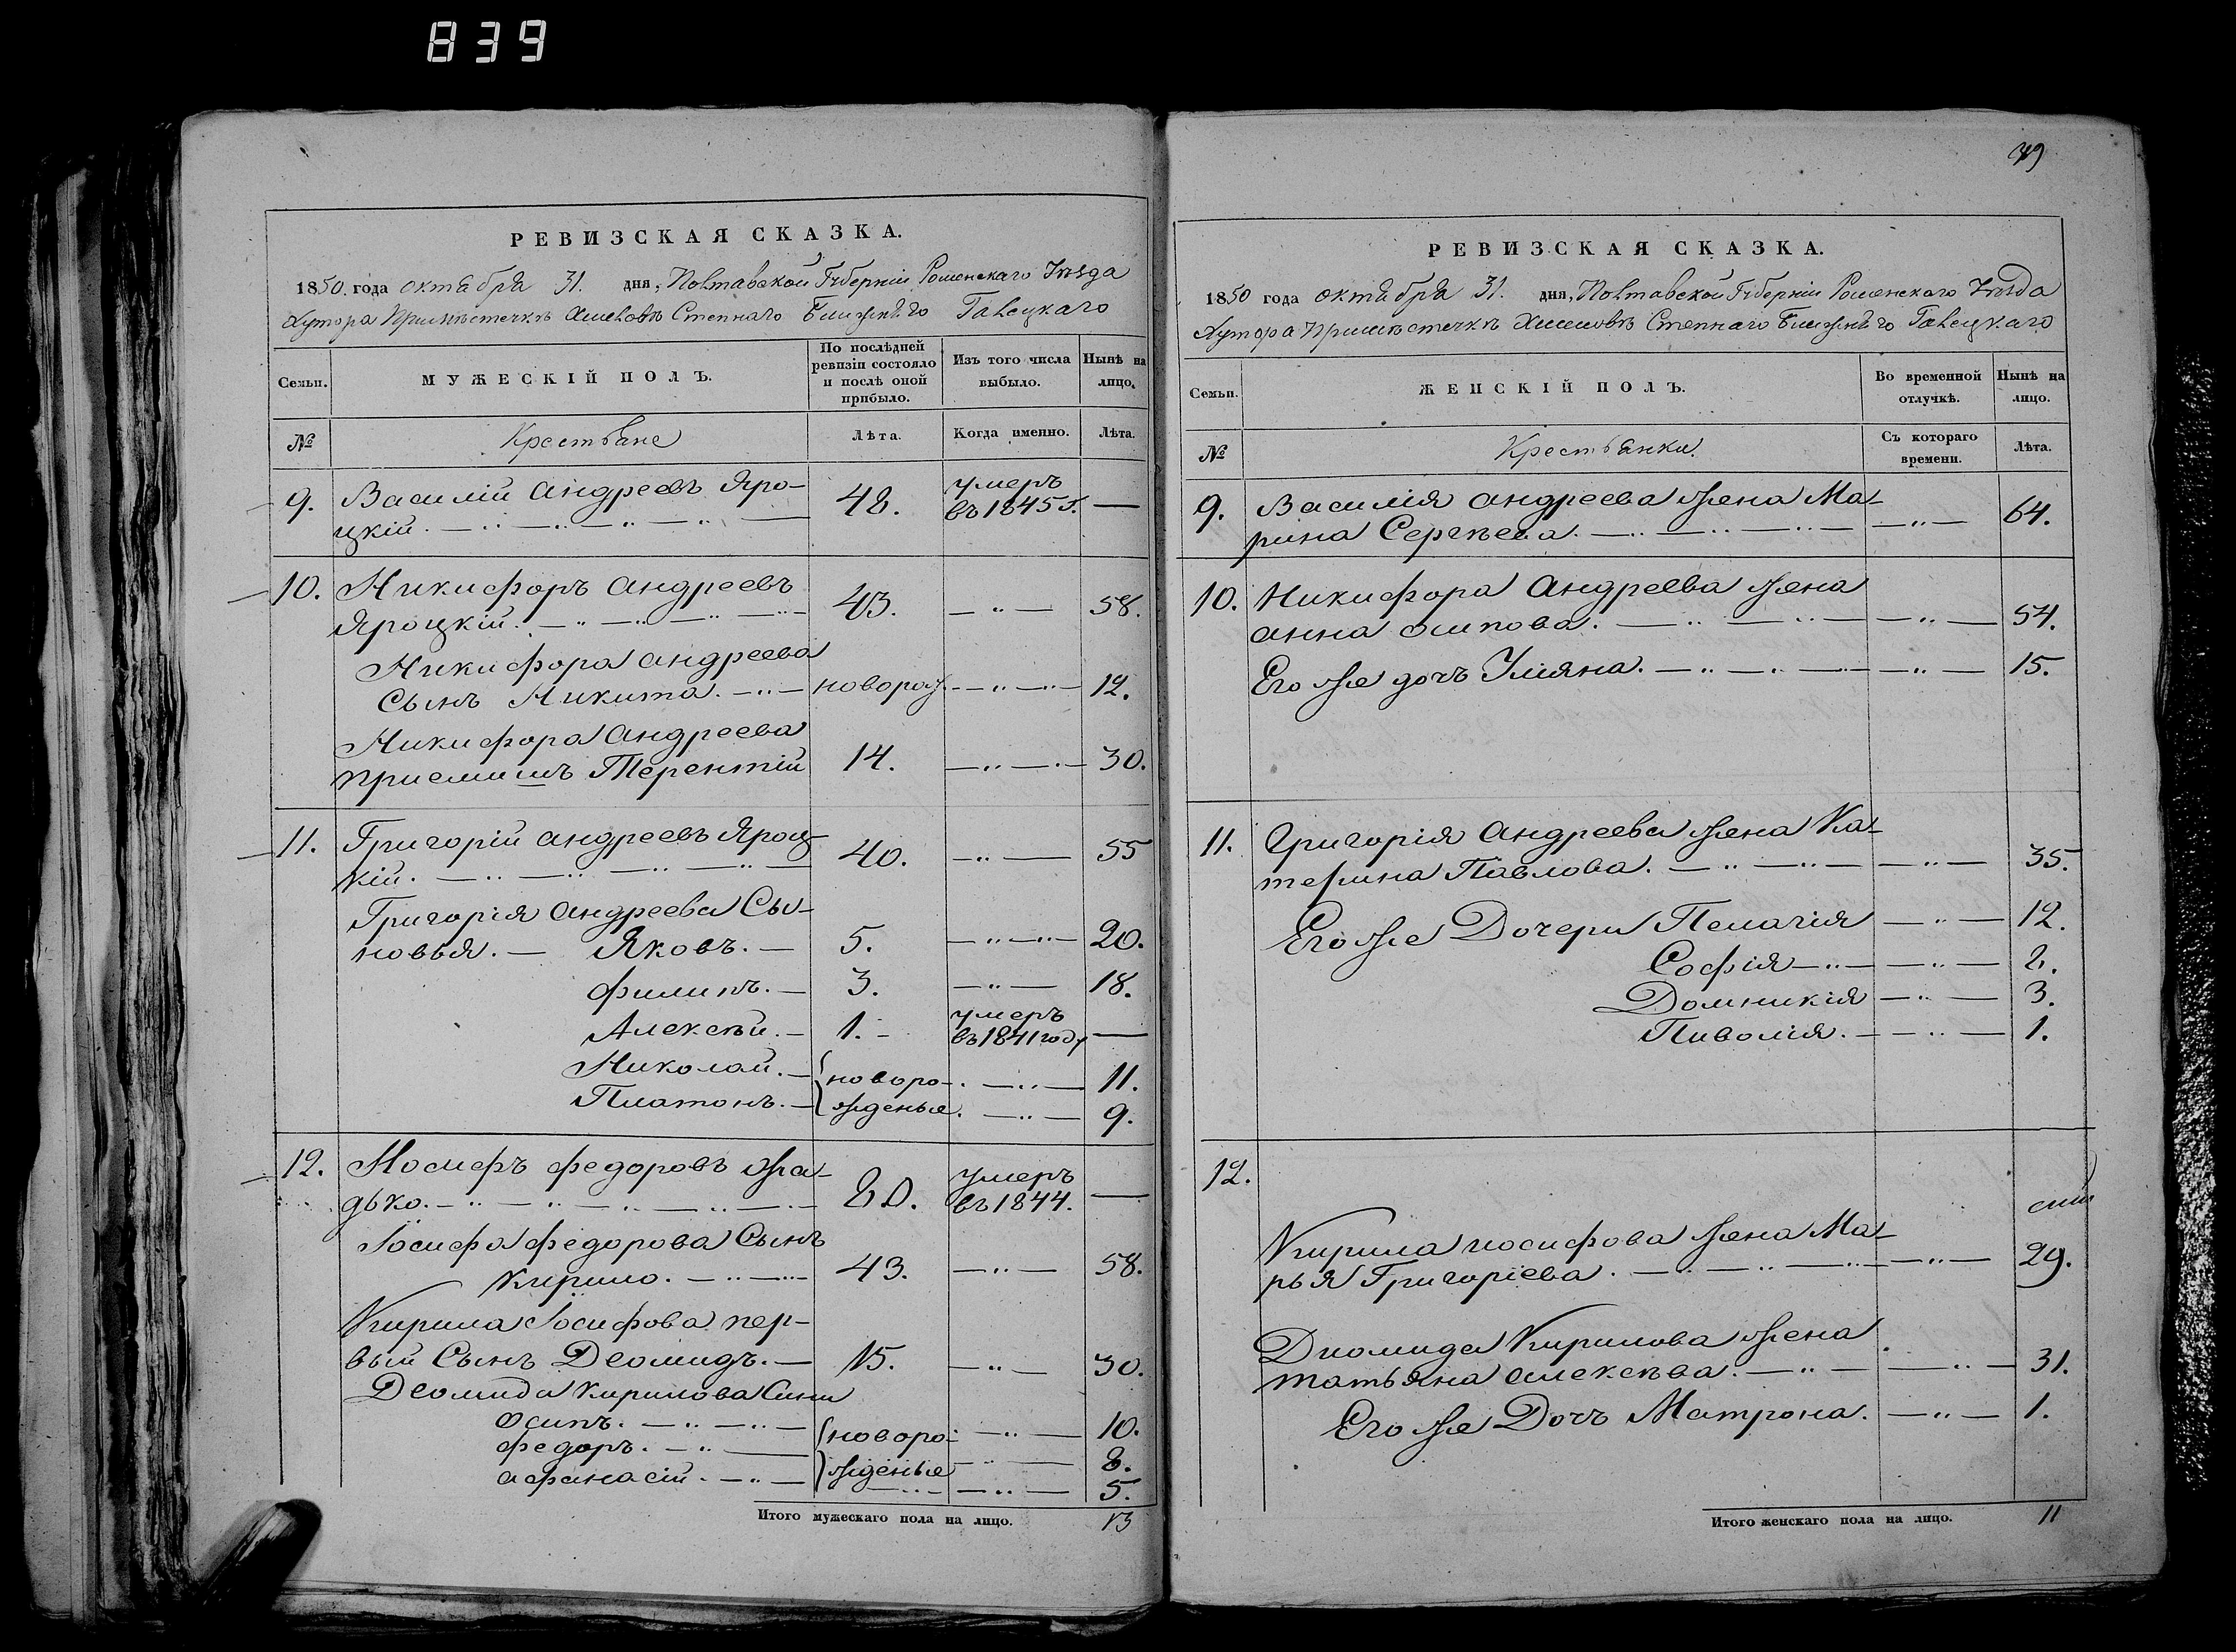 839
РЕВИЗСКАЯ СКАЗКА.
1850. года октября 31. дня, Полтавской Губернии Роменскаго Уезда
Хутора При местечке Хмеловке Степнаго Галецкаго
Семьи.
МУЖЕСКІЙ ПОЛЪ.
По послѣдней ревизіи состояло и послѣ оной прибыло.
Изъ того числа выбыло.
Нынѣ на лицо.
№
Крестьане
Лѣта.
Когда именно.
Лѣта.
9. Василій андреевъ Яро- 48. умеръ —
цкій. въ 1845 г.
10. Никифоръ андреевъ
Яроцкій. 43. — " — 58.
Никифора андреева
Сынъ Никита. — " — новорож. — " — 12.
Никифора андреева
приемишъ Терентій 14. — " — 30.
11. Григорій андреевъ Яроц- 40. — " — 55
кій.
Григорія андреева Сы-
новья. — Яковъ. — 5. — " — 20.
филипъ. — 3. — " — 18.
Алексѣй. — 1. - умеръ въ 1841 году —
Николай. — новоро- — " — 11.
Платонъ. — жденые. — " — 9.
12. Иосифъ федоровъ Жа- умеръ
дько. 80. въ 1844. —
Іосифа федорова Сынъ
Кирило. — " — 43. — " — 58.
Кирила Іосифова пер-
вый Сынъ Деомидъ. — 15. — " — 30.
Деомида Кирилова Сыни
Осипъ. — " — новоро- — " — 10.
федоръ. — " — жденые — " — 8.
афанасій. — " — — " — 5.
Итого мужескаго пола на лицо. 13
РЕВИЗСКАЯ СКАЗКА.
1850 года октября 31. дня, Полтавской Губернии Роменскаго Уезда
Хутора При местечке Хмеловке Степнаго Галецкаго
Семьи.
ЖЕНСКІЙ ПОЛЪ.
Во временной отлучкѣ.
Нынѣ на лицо.
№
Крестьанки.
Съ котораго времени.
Лѣта.
9. Василія андреева жена Ма-
рина Сергѣева. — " — 64.
10. Никифора андреева жена
анна осипова. — " — 54.
Его же дочъ Улияна. — " — 15.
11. Григорія андреева жена Ка-
терина Павлова. — " — 35.
Его же Дочери Пелагія — " — 12.
Софія — " — 2.
Домникія — " — 3.
Пиволія. — " — 1.
12.
Кирила иосифова жена Ма-
рья Григоріева. — " — 29.
Диомида Кирилова жена
татьяна алексѣва. — " — 31.
Его же Дочъ Матрона. — " — 1.
Итого женскаго пола на лицо. 11